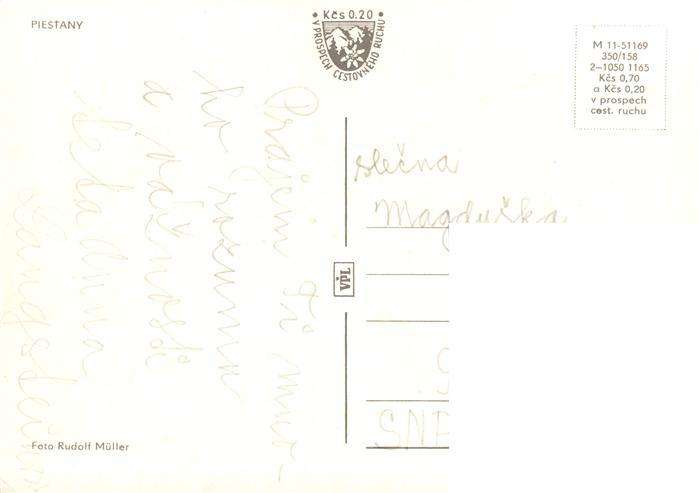 PIEŠŤANY
Kčs 0.20
V PROSPECH CESTOVNÉHO RUCHU
M 11-51169
350/158
2—1050 1165
Kčs 0,70
a Kčs 0,20
v prospech
cest. ruchu
Prajem Ti mno-
ho rozumu
a vážnosti
slečna
Magduška
VPL
SNP
Foto Rudolf Müller